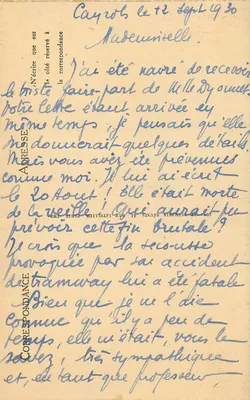 Cayrols le 12 Sept 1930
Mademoiselle.
J'ai été navré de recevoir
le triste faire-part de Melle Dyonnet.
Votre lettre étant arrivée en
même temps, je pensais qu'elle
me donnerait quelques détails.
Mais vous avez été prévenues
comme moi. Je lui ai écrit
le 20 Août! Elle était morte
de la veille! Qui aurait pu
prévoir cette fin brutale?
Je crois que la secousse
provoquée par son accident
de tramway lui a été fatale
Bien que je ne l'aie
connue qu'il y a peu de
temps, elle m'était, vous le
savez, très sympathique
et, en tant que professeur,
N'écrire que sur
le côté réservé à
la correspondance
ADRESSE
CORRESPONDANCE